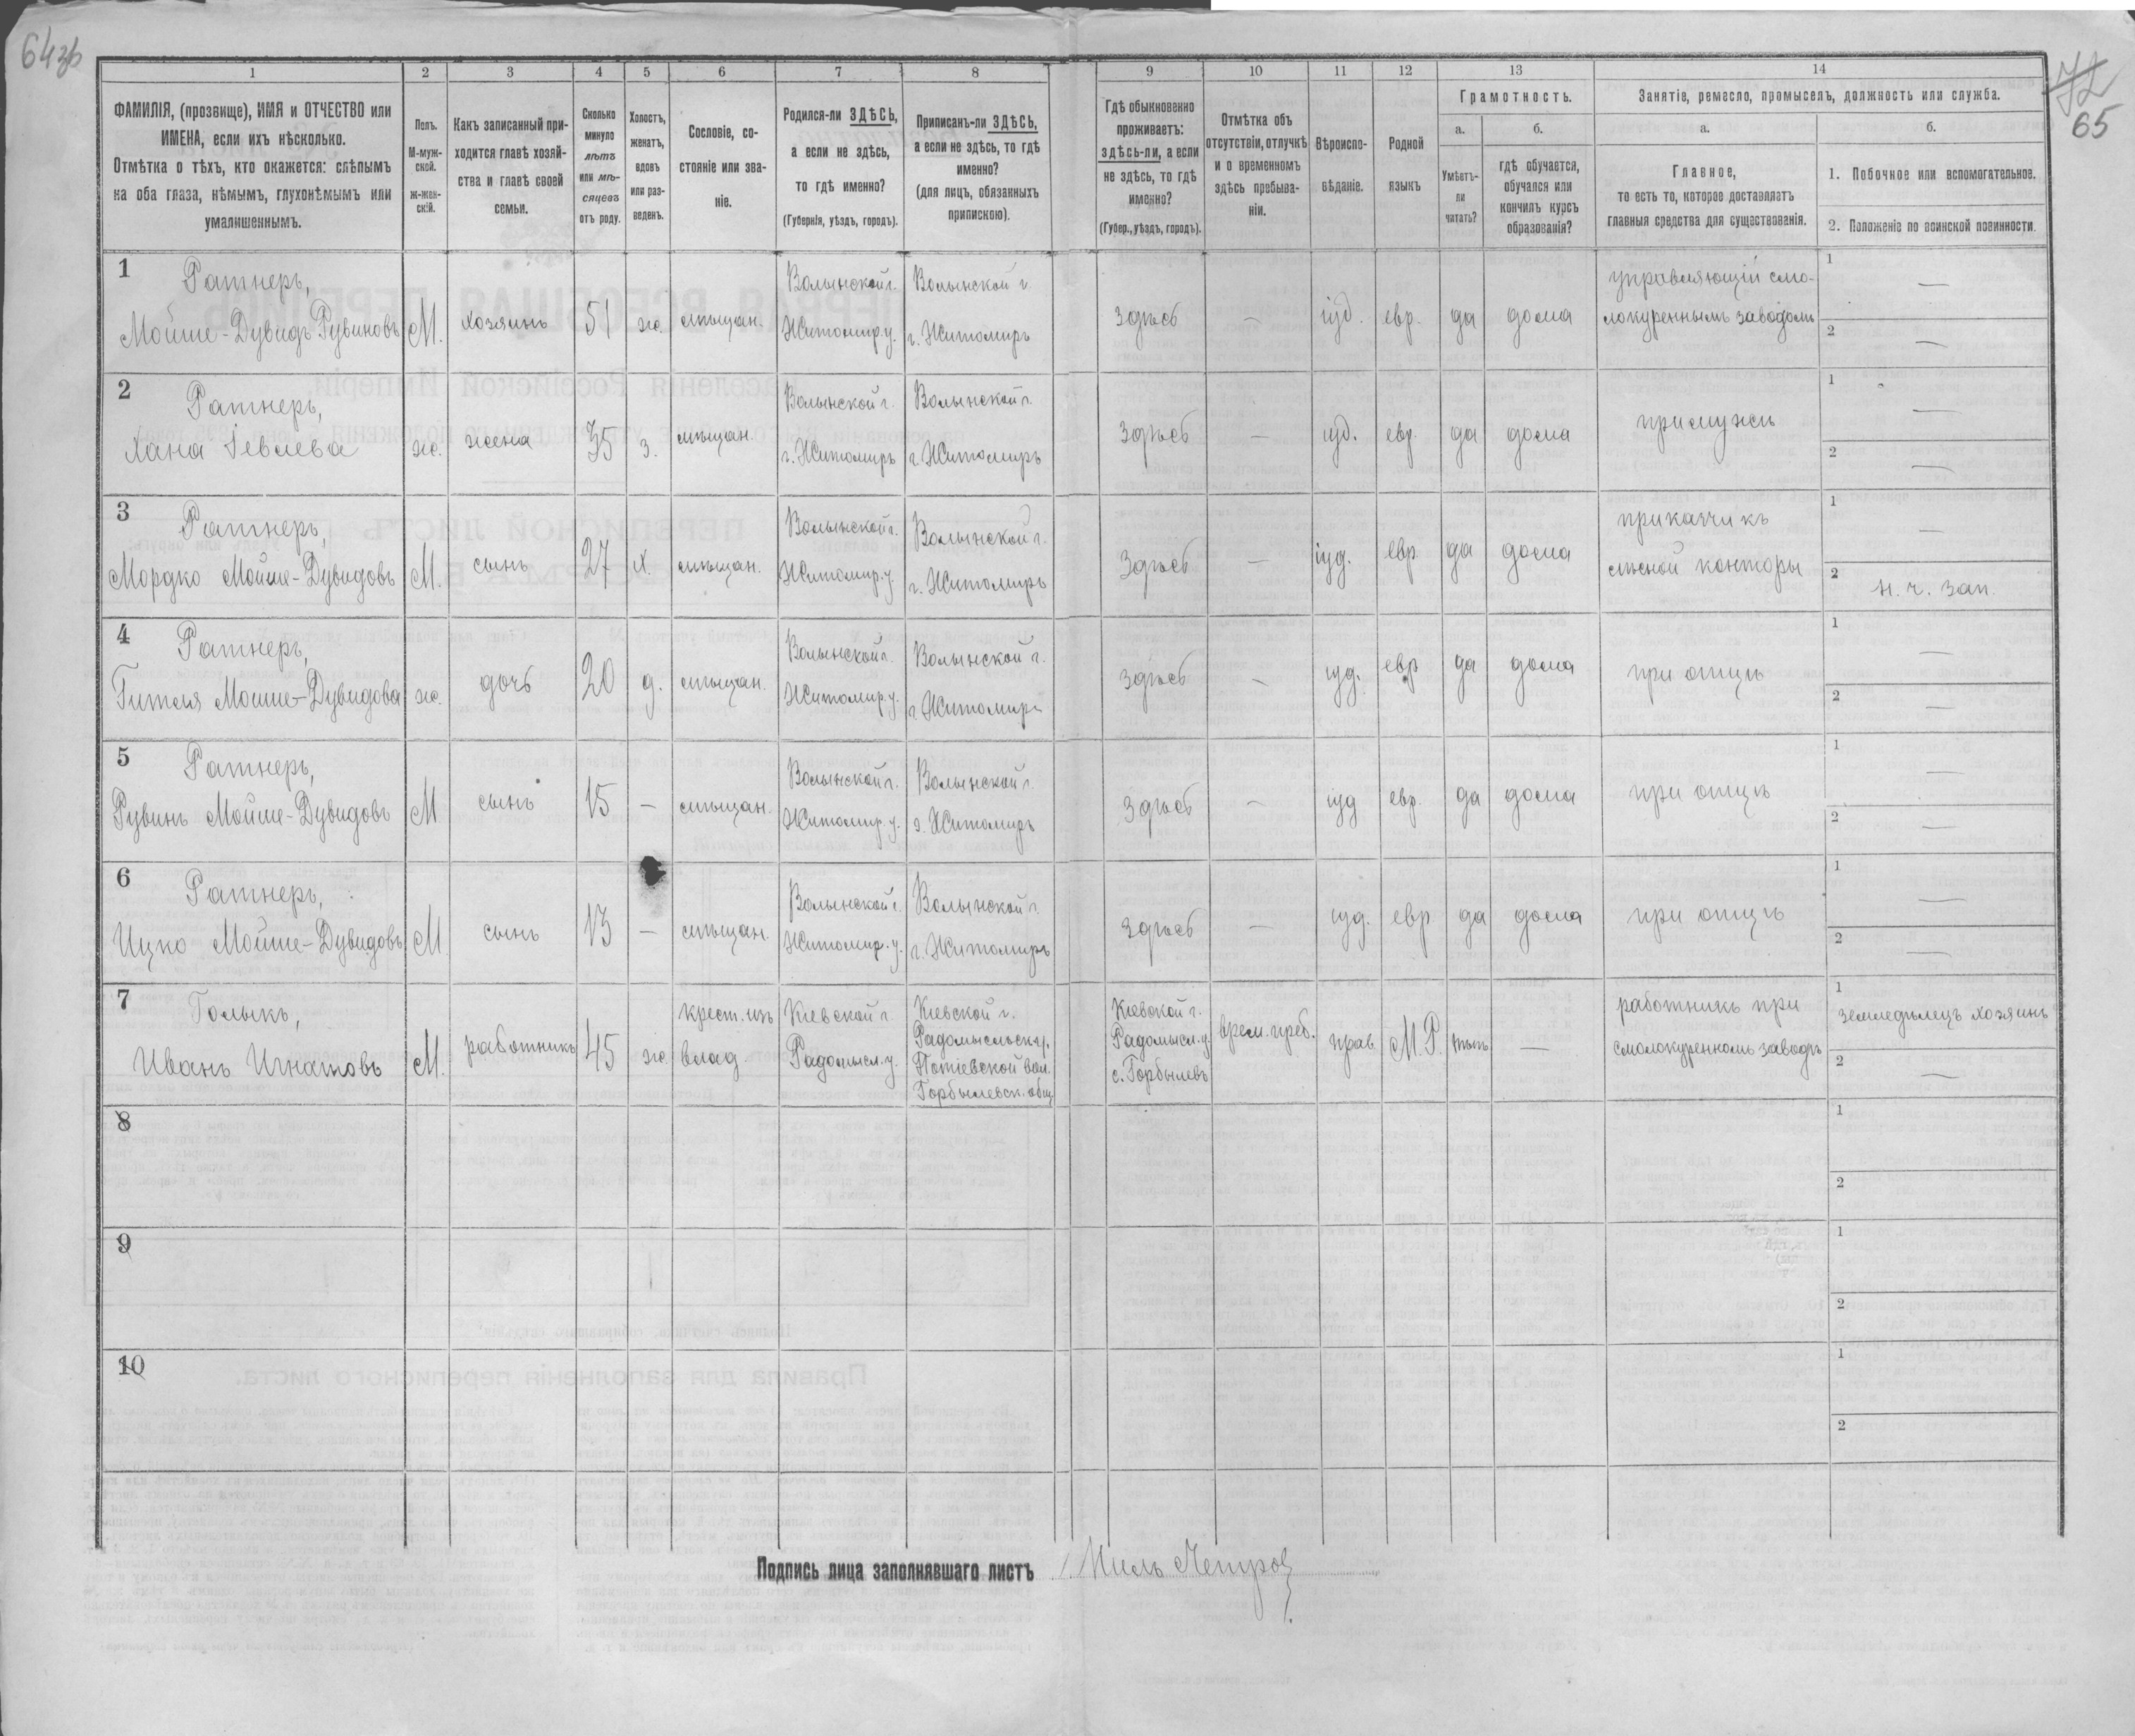 64 зв
72
65
1 2 3 4 5 6 7 8 9 10 11 12 13 14
ФАМИЛІЯ, (прозвище), ИМЯ и ОТЧЕСТВО или
ИМЕНА, если ихъ нѣсколько.
Отмѣтка о тѣхъ, кто окажется: слѣпымъ
на оба глаза, нѣмымъ, глухонѣмымъ или
умалишеннымъ.
Полъ.
М-муж-
ской.
ж-жен-
скій.
Какъ записанный при-
ходится главѣ хозяй-
ства и главѣ своей
семьи.
Сколько
минуло
лѣтъ
или мѣ-
сяцевъ
отъ роду.
Холостъ,
женатъ,
вдовъ
или раз-
веденъ.
Сословіе, со-
стояніе или зва-
ніе.
Родился-ли ЗДѢСЬ,
а если не здѣсь,
то гдѣ именно?
(Губернія, уѣздъ, городъ).
Приписанъ-ли ЗДѢСЬ,
а если не здѣсь, то гдѣ
именно?
(для лицъ, обязанныхъ
припискою).
Гдѣ обыкновенно
проживаетъ:
здѣсь-ли, а если
не здѣсь, то гдѣ
именно?
(Губер., уѣздъ, городъ).
Отмѣтка объ
отсутствіи, отлучкѣ
и о временномъ
здѣсь пребыва-
ніи.
Вѣроиспо-
вѣданіе.
Родной
языкъ
Грамотность.
а.
Умѣетъ-
ли
читать?
б.
гдѣ обучается,
обучался или
кончилъ курсъ
образованія?
Занятіе, ремесло, промыселъ, должность или служба.
а.
Главное,
то есть то, которое доставляетъ
главныя средства для существованія.
б.
1. Побочное или вспомогательное.
2. Положеніе по воинской повинности.
1
Ратнеръ,
Мойше-Дувидъ Рувиновъ
М.
хозяинъ
51
ж.
мѣщан.
Волынской г.
Житомир. у.
Волынской г.
г. Житомиръ
здѣсь
—
іуд.
евр.
да
дома
управляющій смо-
локуреннымъ заводомъ
1
—
2
—
2
Ратнеръ,
Хана Іевлева
ж.
жена
35
з.
мѣщан.
Волынской г.
г. Житомиръ
Волынской г.
г. Житомиръ
здѣсь
—
іуд.
евр.
да
дома
при мужѣ
1
—
2
—
3
Ратнеръ,
Мордко Мойше-Дувидовъ
М.
сынъ
27
х.
мѣщан.
Волынской г.
Житомир. у.
Волынской г.
г. Житомиръ
здѣсь
—
іуд.
евр
да
дома
приказчикъ
лѣсной конторы
1
—
2
н. ч. зап.
4
Ратнеръ,
Гитля Мойше-Дувидова
ж.
дочь
20
д.
мѣщан.
Волынской г.
Житомир. у.
Волынской г.
г. Житомиръ
здѣсь
—
іуд.
евр
да
дома
при отцѣ
1
—
2
—
5
Ратнеръ,
Рувинъ Мойше-Дувидовъ
М
сынъ
15
—
мѣщан.
Волынской г.
Житомир. у.
Волынской г.
г. Житомиръ
здѣсь
—
іуд
евр.
да
дома
при отцѣ
1
—
2
—
6
Ратнеръ,
Ицко Мойше-Дувидовъ
М
сынъ
13
—
мѣщан.
Волынской г.
Житомир. у.
Волынской г.
г. Житомиръ
здѣсь
—
іуд.
евр
да
дома
при отцѣ
1
—
2
—
7
Голыкъ,
Иванъ Игнатовъ
М.
работникъ
45
ж.
крест. изъ
влад.
Кіевской г.
Радомысл. у.
Кіевской г.
Радомысльск. у.
Потіевской вол.
Горбылевск. общ.
Кіевской г.
Радомысл. у.
с. Горбылевъ
врем. преб.
прав.
М. Р.
нѣтъ
—
работникъ при
смолокуренномъ заводѣ
1
земледѣлецъ хозяинъ
2
—
8
1
2
9
1
2
10
1
2
Подпись лица заполнявшаго листъ